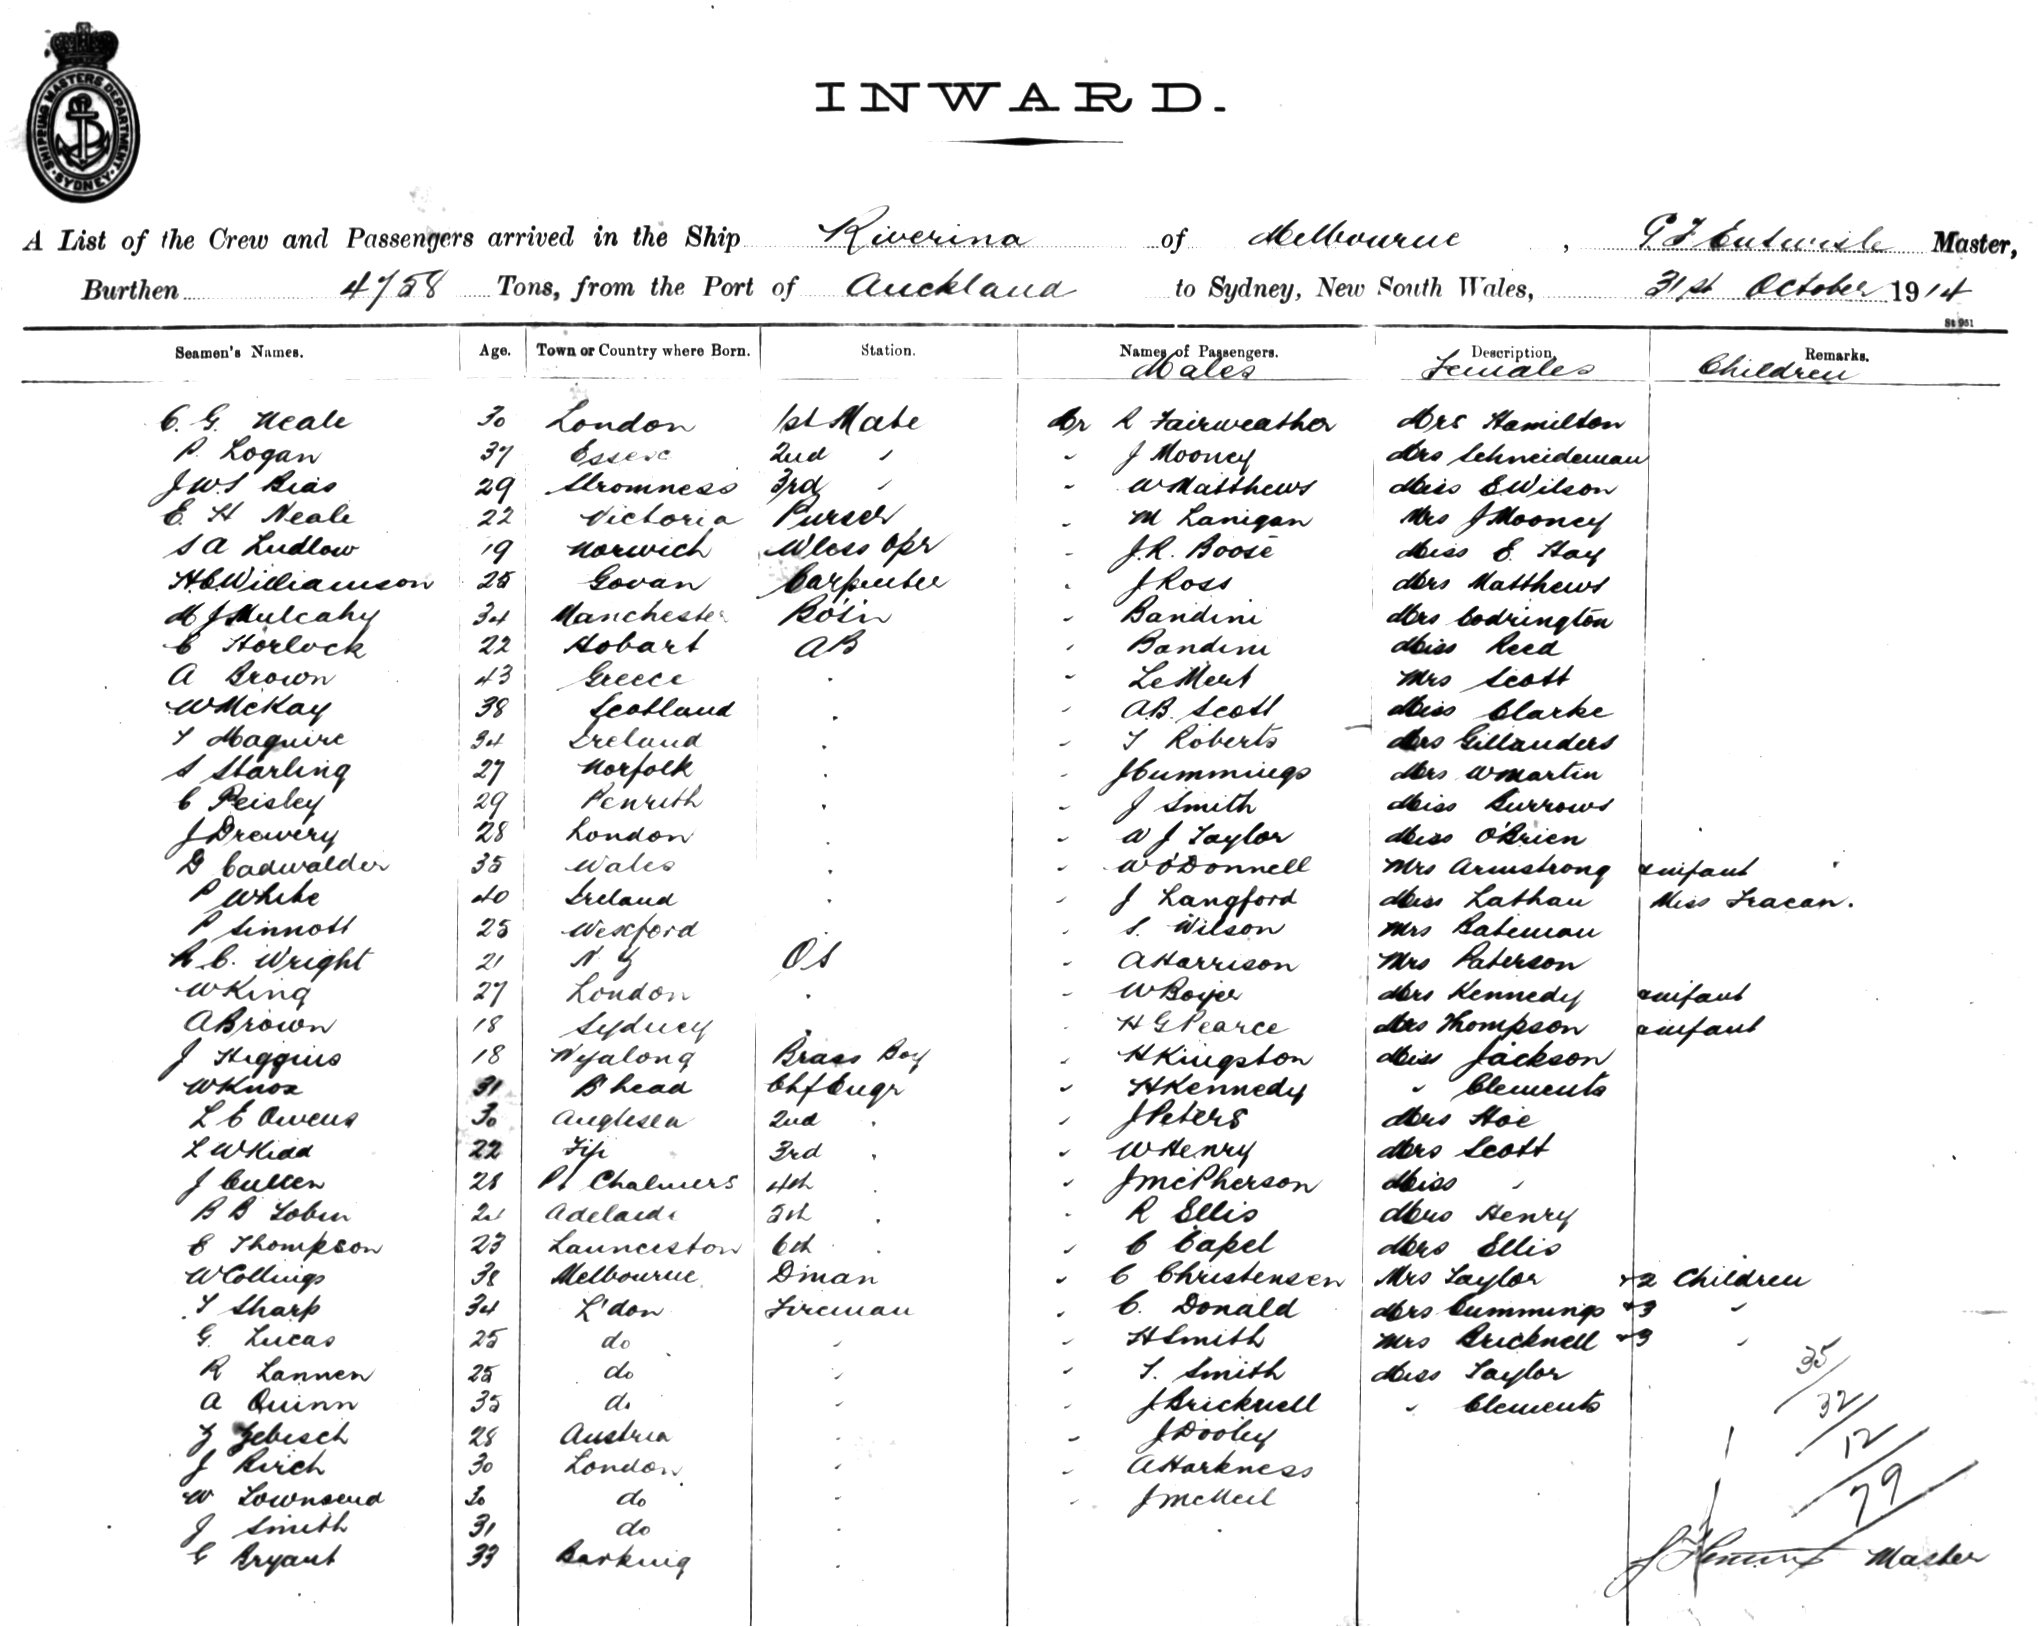 SHIPPING MASTERS DEPARTMENT SYDNEY
INWARD.
A List of the Crew and Passengers arrived in the Ship Riverina of Melbourne, Master,
Burthen 4758 Tons, from the Port of Auckland to Sydney, New South Wales, 31st October 1914
St 961
Seamen's Names. Age. Town or Country where Born. Station. Names of Passengers. Description. Remarks.
Males Females Children
C. G. Neale 30 London 1st Mate Mr R Fairweather Mrs Hamilton
P. Logan 37 Essex 2nd " " J Mooney Mrs Schneideman
J W S Bias 29 Stromness 3rd " " W Matthews Miss E Wilson
E. H Neale 22 Victoria Purser " M Lanigan Mrs J Mooney
S A Ludlow 19 Norwich Wless Opr " J. R. Boose Miss E. Hay
H. C. Williamson 25 Govan Carpenter " J Ross Mrs Matthews
M J Mulcahy 34 Manchester Bo'sn " Bandini Mrs Codrington
C Horlock 22 Hobart AB " Bandini Miss Reed
A Brown 43 Greece " " LeMert Mrs Scott
W McKay 38 Scotland " " A.B. Scott Miss Clarke
T Maguire 34 Ireland " " T Roberts Mrs Gillanders
S Starling 27 Norfolk " " J Cummings Mrs W Martin
C Peisley 29 Penrith " " J Smith Miss Burrows
J Drewery 28 London " " W J Taylor Miss O'Brien
D Cadwalder 35 Wales " " W O'Donnell Mrs Armstrong & infant
P White 40 Ireland " " J Langford Miss Lathan Miss Tracan.
P Sinnott 25 Wexford " S. Wilson Mrs Bateman
R C. Wright 21 N Z OS " A Harrison Mrs Paterson
W King 27 London " " W Boyer Mrs Kennedy & infant
A Brown 18 Sydney " " H G Pearce Mrs Thompson & infant
J Higgins 18 Wyalong Brass Boy " H Kingston Miss Jackson
W Knox 31 B'head Chf Engr " H Kennedy " Clements
L E Owens 30 Anglesea 2nd " " J Peters Mrs Hoe
L W Kidd 22 Fiji 3rd " " W Henry Mrs Scott
J Cullen 28 Pt Chalmers 4th " " J McPherson Miss "
B B Tobin 24 Adelaide 5th " " R Ellis Mrs Henry
E Thompson 23 Launceston 6th " " C Capel Mrs Ellis
W Collings 38 Melbourne Dman " C Christensen Mrs Taylor & 2 Children
T Sharp 34 L'don Fireman " C. Donald Mrs Cummings & 3 "
G. Lucas 25 do " " H Smith Mrs Bricknell & 3 "
R Lannen 25 do " " T. Smith Miss Taylor
A Quinn 35 do " " J Bricknell " Clements
Z Zebisch 28 Austria " " J Dooley
J Birch 30 London " " A Harkness
W Townsend 30 do " " J McNeil
J Smith 31 do "
G Bryant 33 Barking "
35
32
12
79
Master